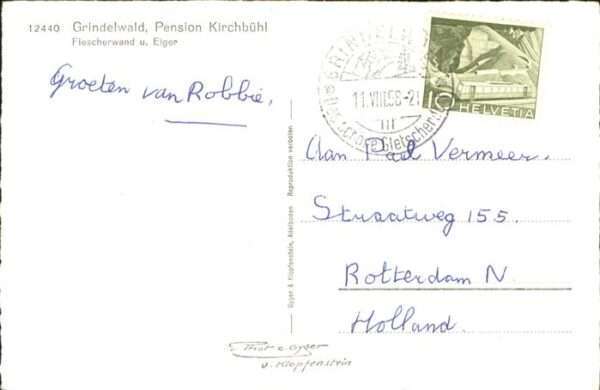 12440 Grindelwald, Pension Kirchbühl
Fiescherwand u. Eiger
Groeten van Robbie.
GRINDELWALD
11.VIII.58-21
III
Gletscherdorf
10
HELVETIA
Aan Pad Vermeer.
Straatweg 155.
Rotterdam N
Holland.
Gyger & Klopfenstein, Adelboden Reproduktion verboten
Phot. e. Gyger
u. Klopfenstein